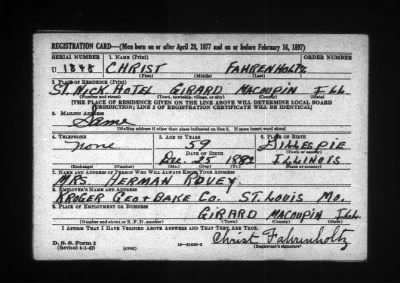 REGISTRATION CARD—(Men born on or after April 28, 1877 and on or before February 16, 1897)
SERIAL NUMBER 1. NAME (Print) ORDER NUMBER
U 1848 CHRIST FAHRENHOLTZ
(First) (Middle) (Last)
2. PLACE OF RESIDENCE (Print)
ST. NICK HOTEL GIRARD MACOUPIN ILL.
(Number and street) (Town, township, village, or city) (County) (State)
[THE PLACE OF RESIDENCE GIVEN ON THE LINE ABOVE WILL DETERMINE LOCAL BOARD
JURISDICTION; LINE 2 OF REGISTRATION CERTIFICATE WILL BE IDENTICAL]
3. MAILING ADDRESS
Same
[Mailing address if other than place indicated on line 2. If same insert word same]
4. TELEPHONE 5. AGE IN YEARS 6. PLACE OF BIRTH
none 59 GILLESPIE
DATE OF BIRTH (Town or county)
Dec. 25 1882 ILLINOIS
(Exchange) (Number) (Mo.) (Day) (Yr.) (State or country)
7. NAME AND ADDRESS OF PERSON WHO WILL ALWAYS KNOW YOUR ADDRESS
MRS. HERMAN ROVEY.
8. EMPLOYER'S NAME AND ADDRESS
KROGER GRO + BAKE CO. ST. LOUIS MO.
9. PLACE OF EMPLOYMENT OR BUSINESS
GIRARD MACOUPIN ILL.
(Number and street or R. F. D. number) (Town) (County) (State)
I AFFIRM THAT I HAVE VERIFIED ABOVE ANSWERS AND THAT THEY ARE TRUE.
D. S. S. Form 1
(Revised 4-1-42) (over) Christ Fahrenholtz
(Registrant's signature)